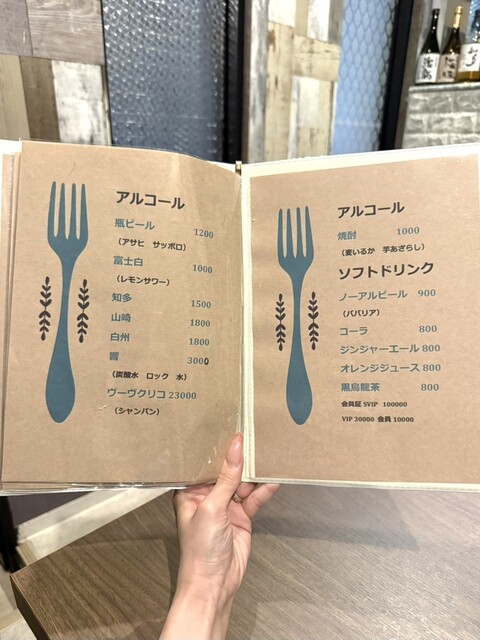 アルコール
瓶ビール 1200
（アサヒ サッポロ）
富士白 1000
（レモンサワー）
知多 1500
山崎 1800
白州 1800
響 3000
（炭酸水 ロック 水）
ヴーヴクリコ 23000
（シャンパン）
アルコール
焼酎 1000
（麦いるか 芋あざらし）
ソフトドリンク
ノーアルビール 900
（ババリア）
コーラ 800
ジンジャーエール 800
オレンジジュース 800
黒烏龍茶 800
会員証 SVIP 100000
VIP 30000 会員 10000